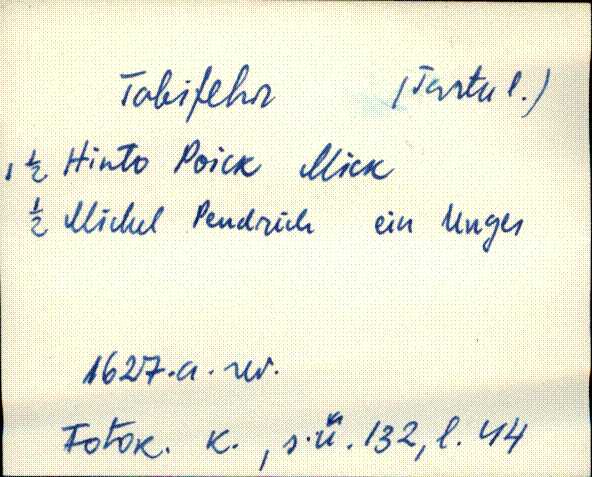 Tabifehr (Tartu l.)
1 1/2 Hinto Poick Mick
1/2 Michel Pendrich ein Unger
1627.a. rev.
Fotok. K., s.ü. 132, l. 44